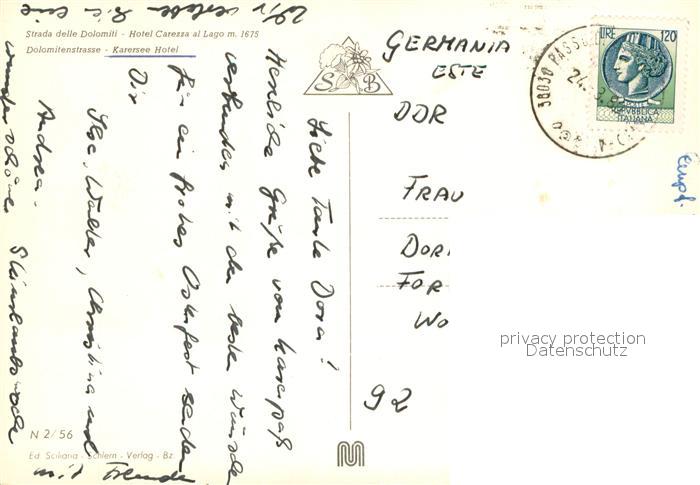 Strada delle Dolomiti - Hotel Carezza al Lago m. 1675
Dolomitenstrasse - Karersee Hotel
S B
GERMANIA
ESTE
DDR
FRAU
DORI
FOR
WO
92
LIRE 120
REPVBBLICA
ITALIANA
38030 PASSO
24
Empf.
privacy protection
Datenschutz
Liebe Tante Dora!
Herzliche Grüße vom
verbunden mit den besten Wünschen
für ein frohes Osterfest senden
Dir
Ilse, Walter, Christina und
Andrea.
wunderschöne
mit Freunden
N 2/56
Ed. Sciliaria - Schlern - Verlag - Bz.